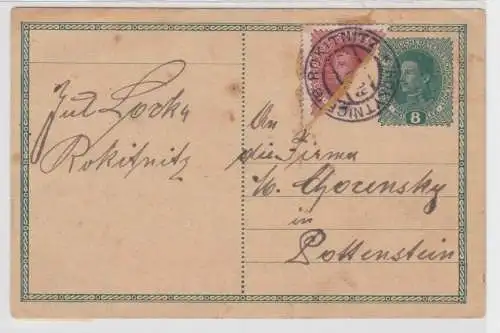 ROKITNITZ
ROKYTNICE
8
Jul Locka
Rokitnitz
An
die Firma
Chozensky
in
Pottenstein